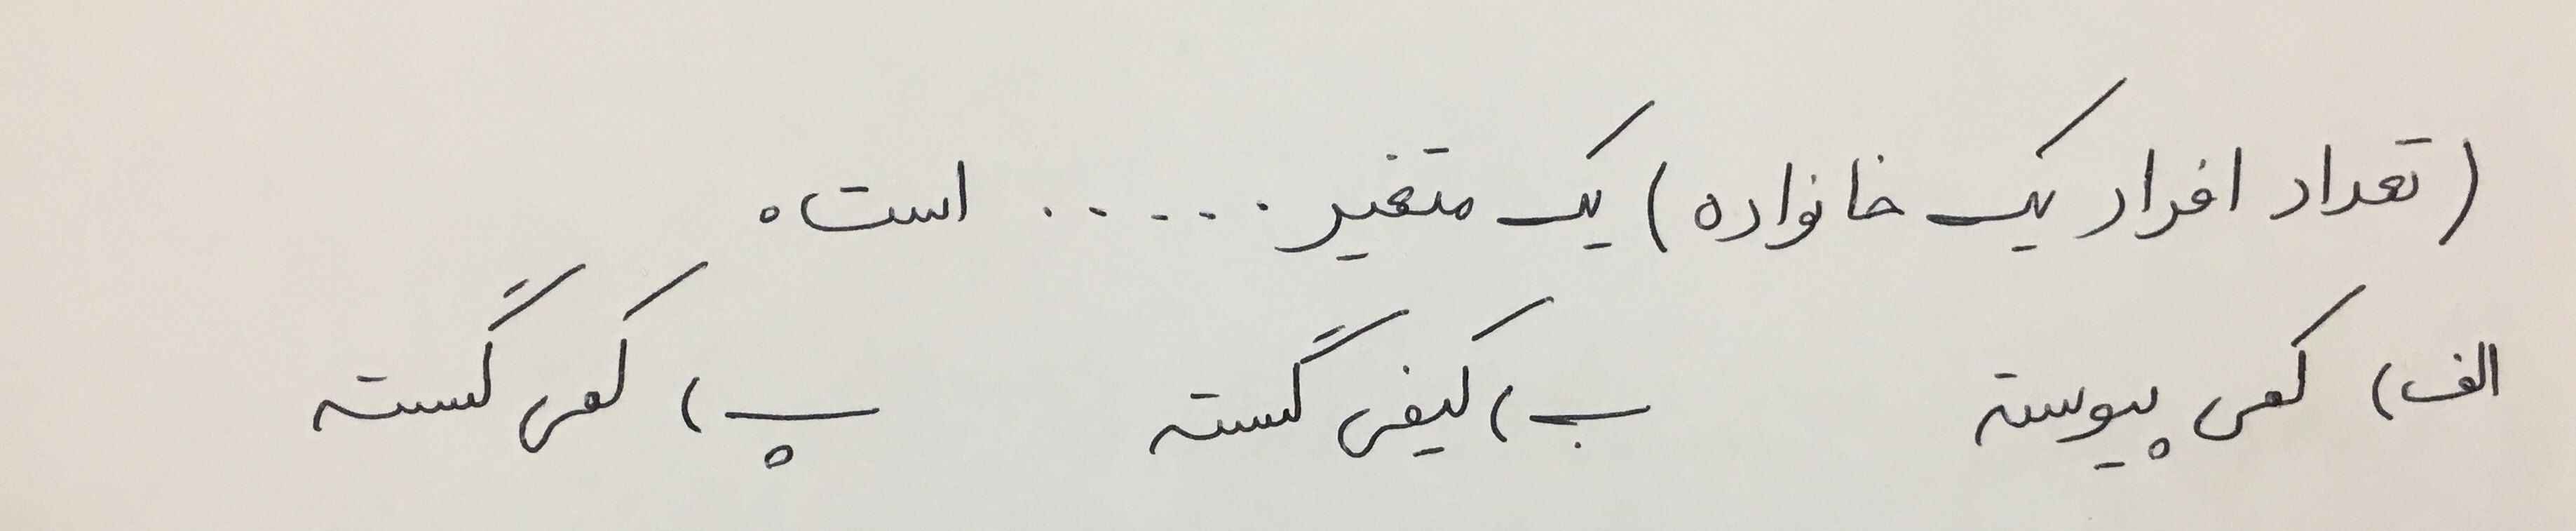 (تعداد افراد یک خانواده) یک متغیر...... است.
الف) کمی پیوسته ب) کیفی گسسته پ) کمی گسسته